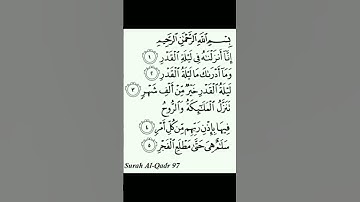 بِسْمِ ٱللَّهِ ٱلرَّحْمَٰنِ ٱلرَّحِيمِ
إِنَّآ أَنزَلْنَٰهُ فِى لَيْلَةِ ٱلْقَدْرِ ١
وَمَآ أَدْرَىٰكَ مَا لَيْلَةُ ٱلْقَدْرِ ٢
لَيْلَةُ ٱلْقَدْرِ خَيْرٌ مِّنْ أَلْفِ شَهْرٍ ٣
تَنَزَّلُ ٱلْمَلَٰٓئِكَةُ وَٱلرُّوحُ
فِيهَا بِإِذْنِ رَبِّهِم مِّن كُلِّ أَمْرٍ ٤
سَلَٰمٌ هِىَ حَتَّىٰ مَطْلَعِ ٱلْفَجْرِ ٥
Surah Al-Qadr 97